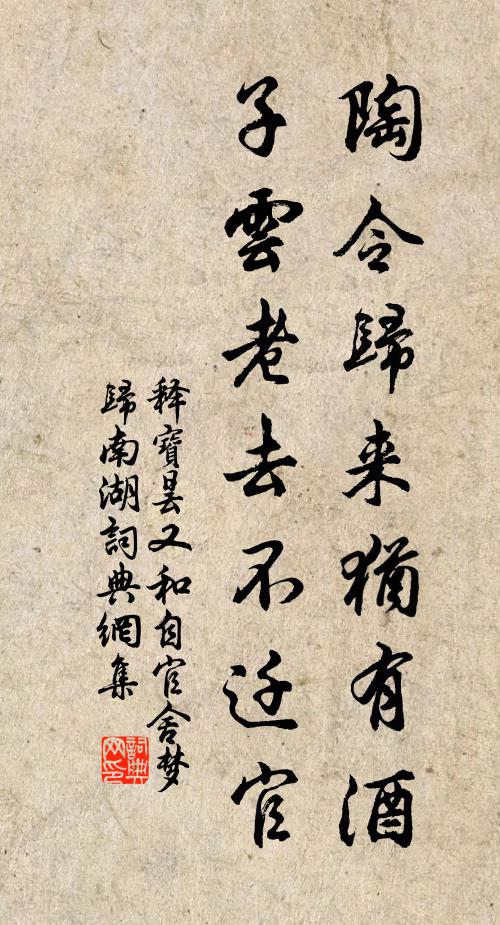 陶令歸来猶有酒
子雲老去不迁官
释寶曇又和自官舍梦
歸南湖詞典網集
詞典网印